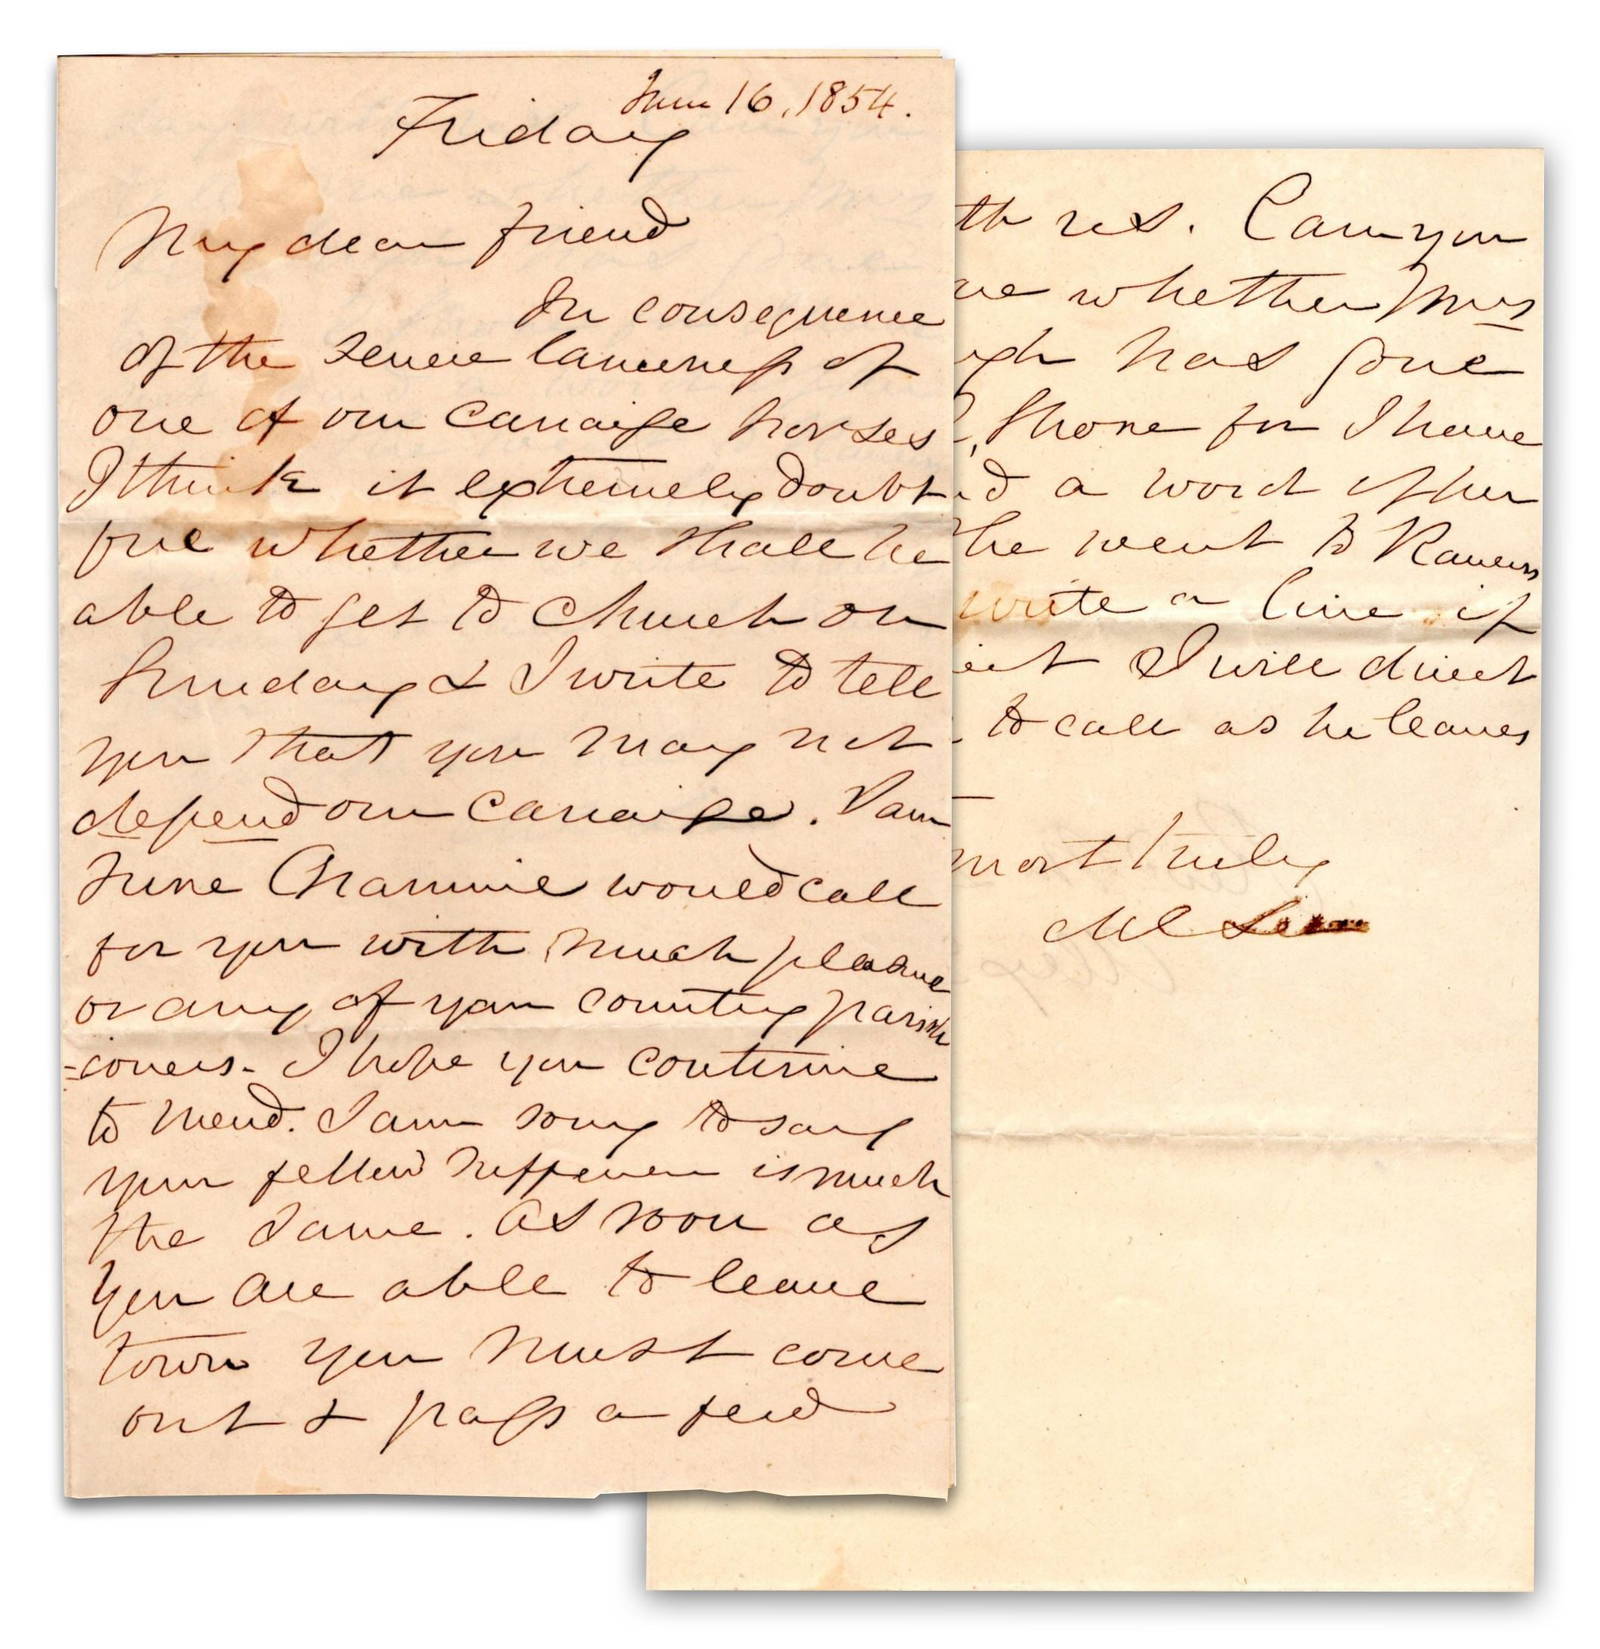 June 16, 1854.
Friday
My dear friend
In consequence
of the severe lameness of
one of our carriage horses
I think it extremely doubt
ful whether we shall be
able to get to Church on
Sunday & I write to tell
you that you may not
depend our carriage. I am
sure would call
for you with much pleasure
or any of your country parish
=ioners. I hope you continue
to mend. I am sorry to say
your fellow sufferer is much
the same. As soon as
you are able to leave
town you must come
out & pass a few
th us. Can you
me whether Mrs
gh has gone
Shore for I have
d a word of her
she went to
write a line if
I will direct
to call as he leaves
most truly
MC